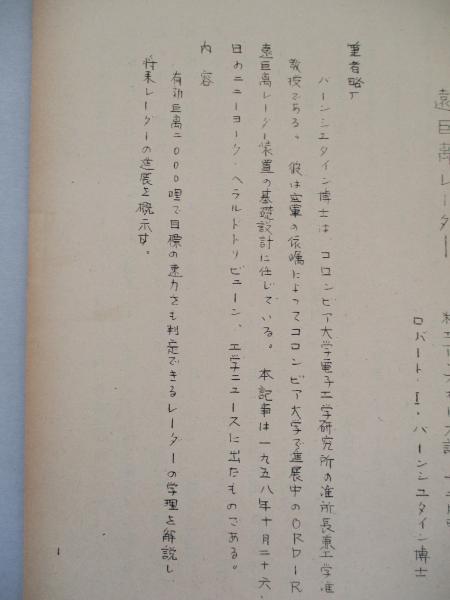 遠巨離レーダー
ロバート・I・バーンシユタイン博士
筆者略了
バーンシユタイン博士は コロンビア大学電子工学研究所の准所長兼工学准
教授である。 彼は空軍の依嘱によってコロンビア大学で進展中のORDIR
遠巨離レーダー装置の基礎設計に任じている。 本記事は一九五八年十月二十六、
日のニューヨーク・ヘラルドトリビューン、工学ニュースに出たものである。
内 容
有効巨離二000哩で目標の速力さも判定できるレーダーの学理を解説し
将来レーダーの進展を概示す。
1